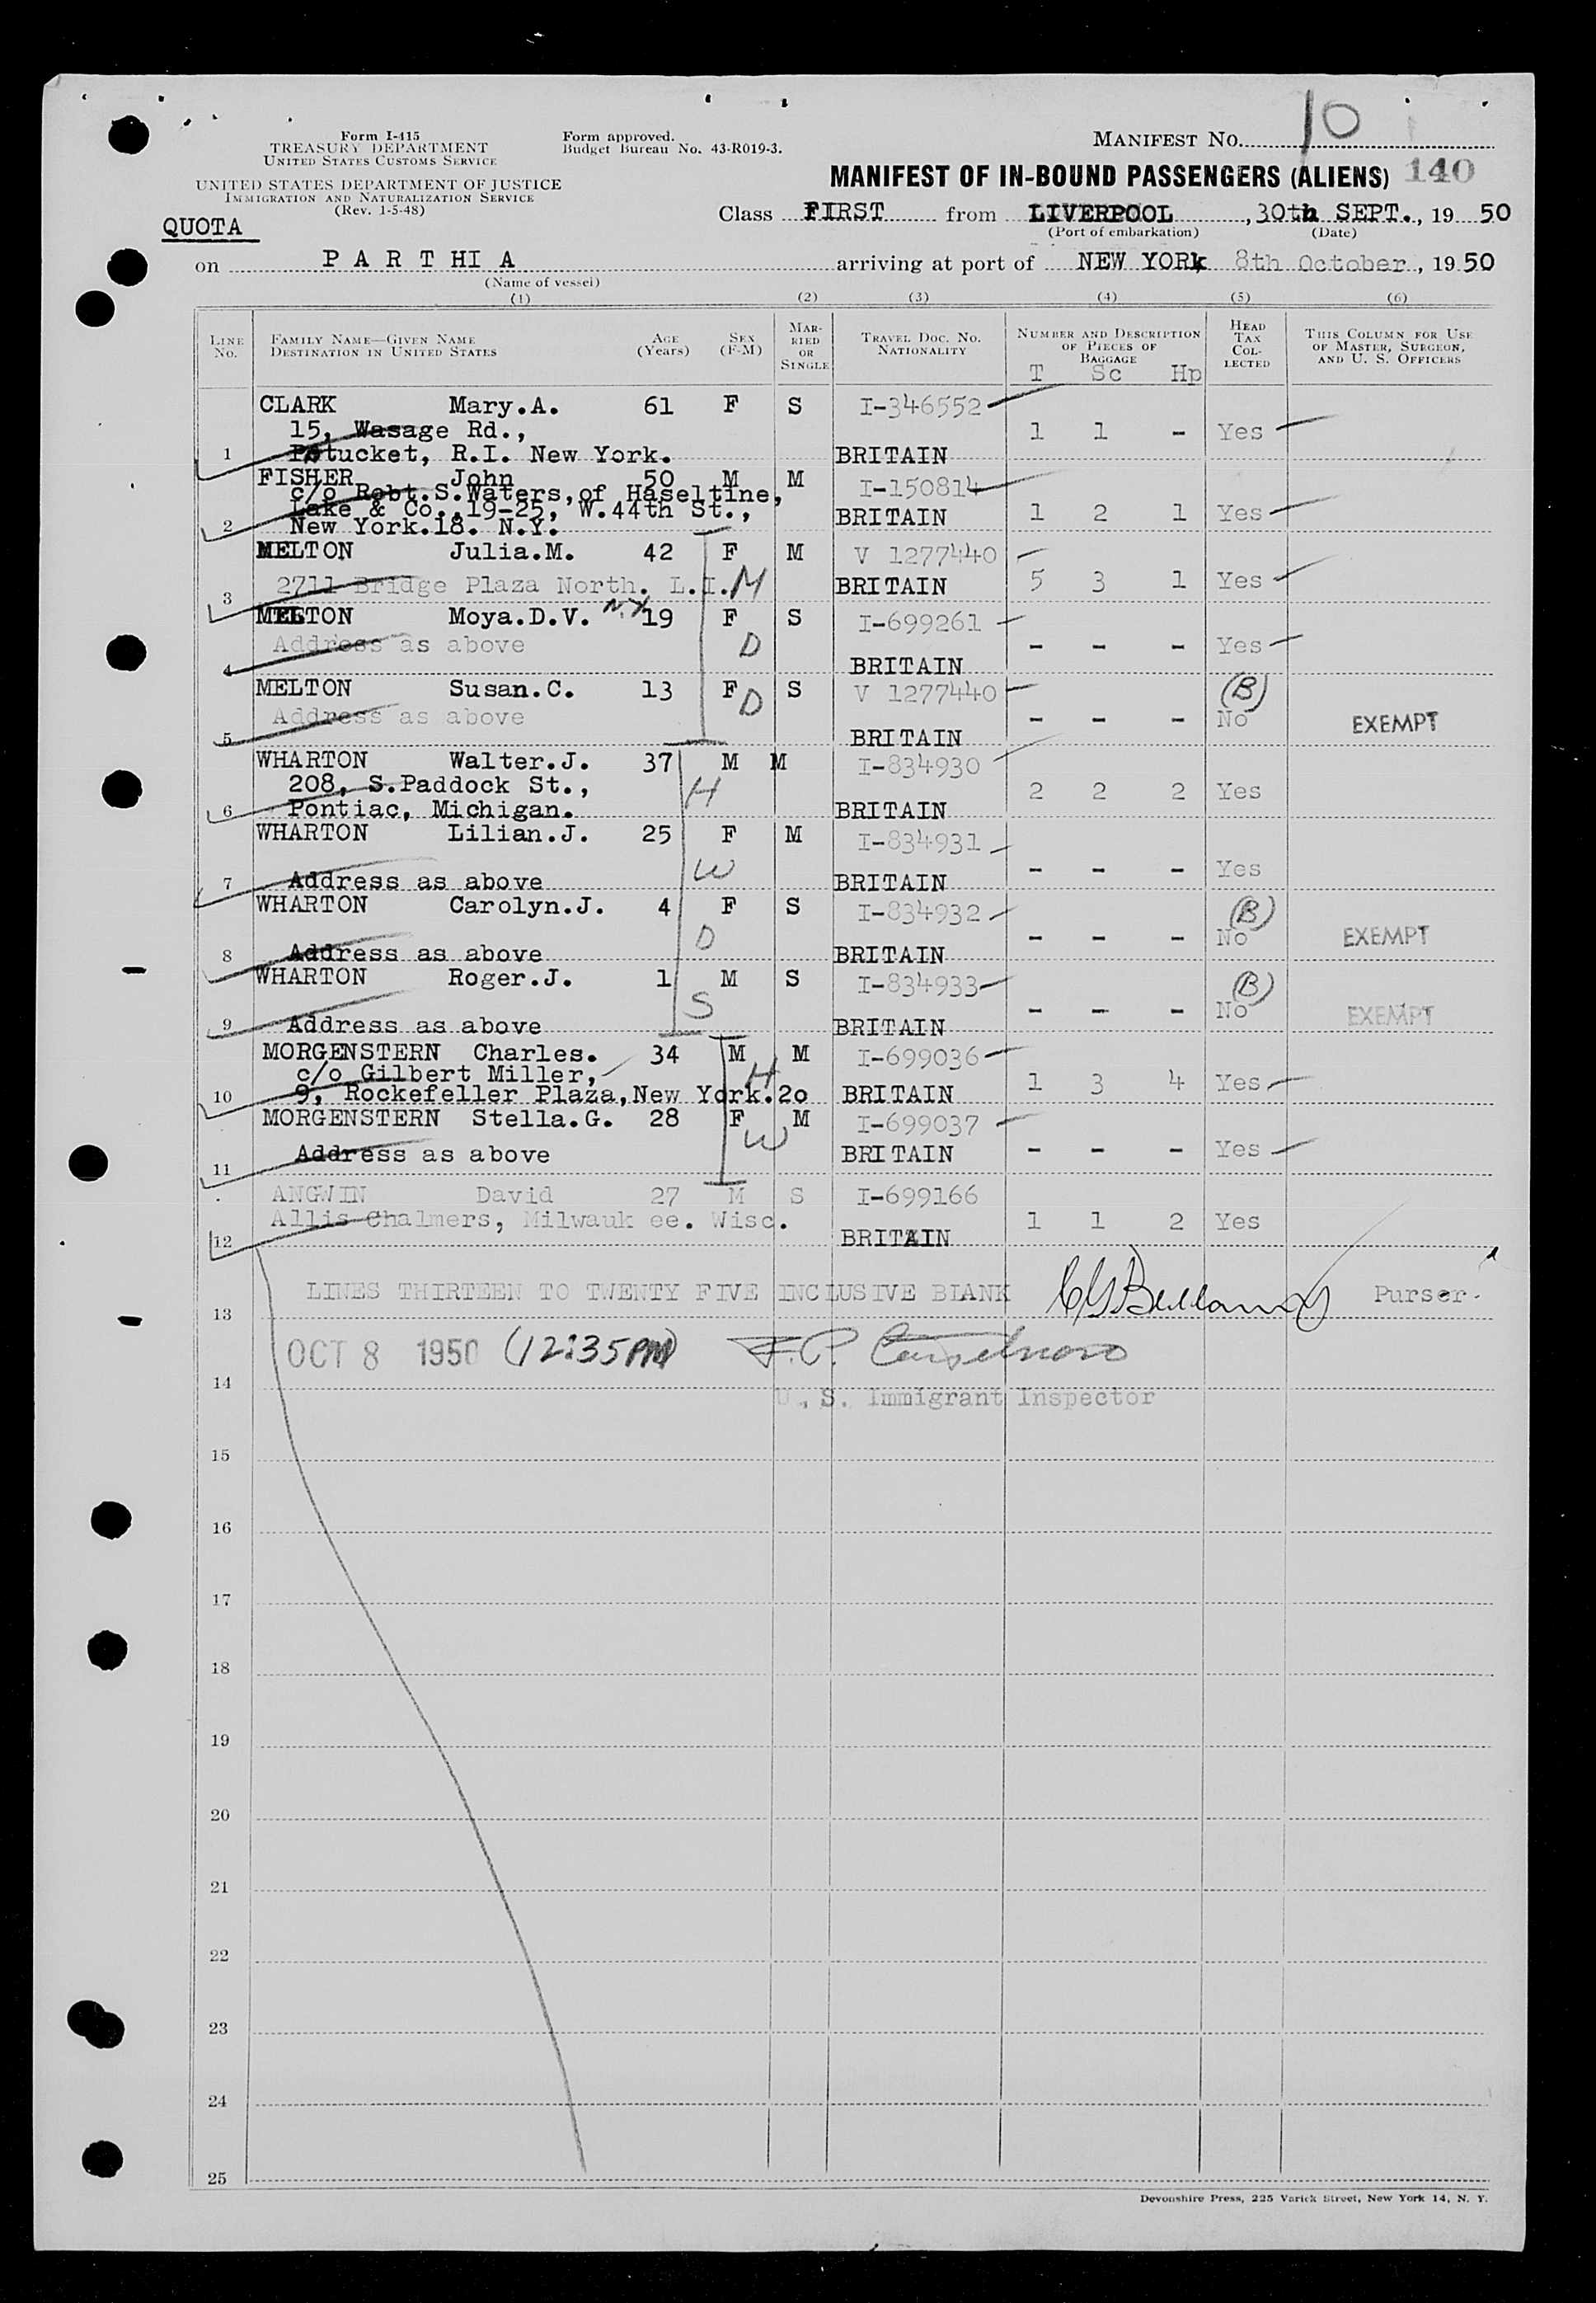 Form I-415
TREASURY DEPARTMENT
UNITED STATES CUSTOMS SERVICE
UNITED STATES DEPARTMENT OF JUSTICE
IMMIGRATION AND NATURALIZATION SERVICE
(Rev. 1-5-48)
Form approved.
Budget Bureau No. 43-R019-3.
MANIFEST NO. 10
MANIFEST OF IN-BOUND PASSENGERS (ALIENS) 140
QUOTA
Class FIRST from LIVERPOOL, 30th SEPT., 1950
(Port of embarkation) (Date)
on PARTHIA arriving at port of NEW YORK 8th October, 1950
(Name of vessel)
(1) (2) (3) (4) (5) (6)
LINE NO. FAMILY NAME—GIVEN NAME DESTINATION IN UNITED STATES AGE (Years) SEX (F-M) MARRIED OR SINGLE TRAVEL DOC. NO. NATIONALITY NUMBER AND DESCRIPTION OF PIECES OF BAGGAGE HEAD TAX COLLECTED THIS COLUMN FOR USE OF MASTER, SURGEON, AND U. S. OFFICERS
T Sc Hp
CLARK Mary.A. 61 F S I-346552
15, Wasage Rd., 1 1 - Yes
1 Patucket, R.I. New York. BRITAIN
FISHER John 50 M M I-150814
c/o Robt.S.Waters,of Haseltine,
Lake & Co.,19-25, W.44th St., BRITAIN 1 2 1 Yes
2 New York.18. N.Y.
MELTON Julia.M. 42 F M V 1277440
3 2711 Bridge Plaza North. L.I. N.Y. M BRITAIN 5 3 1 Yes
MELTON Moya.D.V. 19 F S I-699261
Address as above D - - - Yes
4 BRITAIN
MELTON Susan.C. 13 F D S V 1277440 (B)
Address as above - - - No EXEMPT
5 BRITAIN
WHARTON Walter.J. 37 M M I-834930
208, S.Paddock St., H 2 2 2 Yes
6 Pontiac, Michigan. BRITAIN
WHARTON Lilian.J. 25 F M I-834931
W - - - Yes
7 Address as above BRITAIN
WHARTON Carolyn.J. 4 F S I-834932 (B)
D - - - No EXEMPT
8 Address as above BRITAIN
WHARTON Roger.J. 1 M S I-834933 (B)
S - - - No EXEMPT
9 Address as above BRITAIN
MORGENSTERN Charles. 34 M M I-699036
c/o Gilbert Miller, H 1 3 4 Yes
10 9, Rockefeller Plaza,New York.20 BRITAIN
MORGENSTERN Stella.G. 28 F M I-699037
Address as above W BRITAIN - - - Yes
11
ANGWIN David 27 M S I-699166
Allis Chalmers, Milwauk ee. Wisc. 1 1 2 Yes
12 BRITAIN
LINES THIRTEEN TO TWENTY FIVE INCLUSIVE BLANK Purser.
13
OCT 8 1950 (12:35PM)
14
U.S. Immigrant Inspector
15
16
17
18
19
20
21
22
23
24
25
Devonshire Press, 225 Varick Street, New York 14, N. Y.